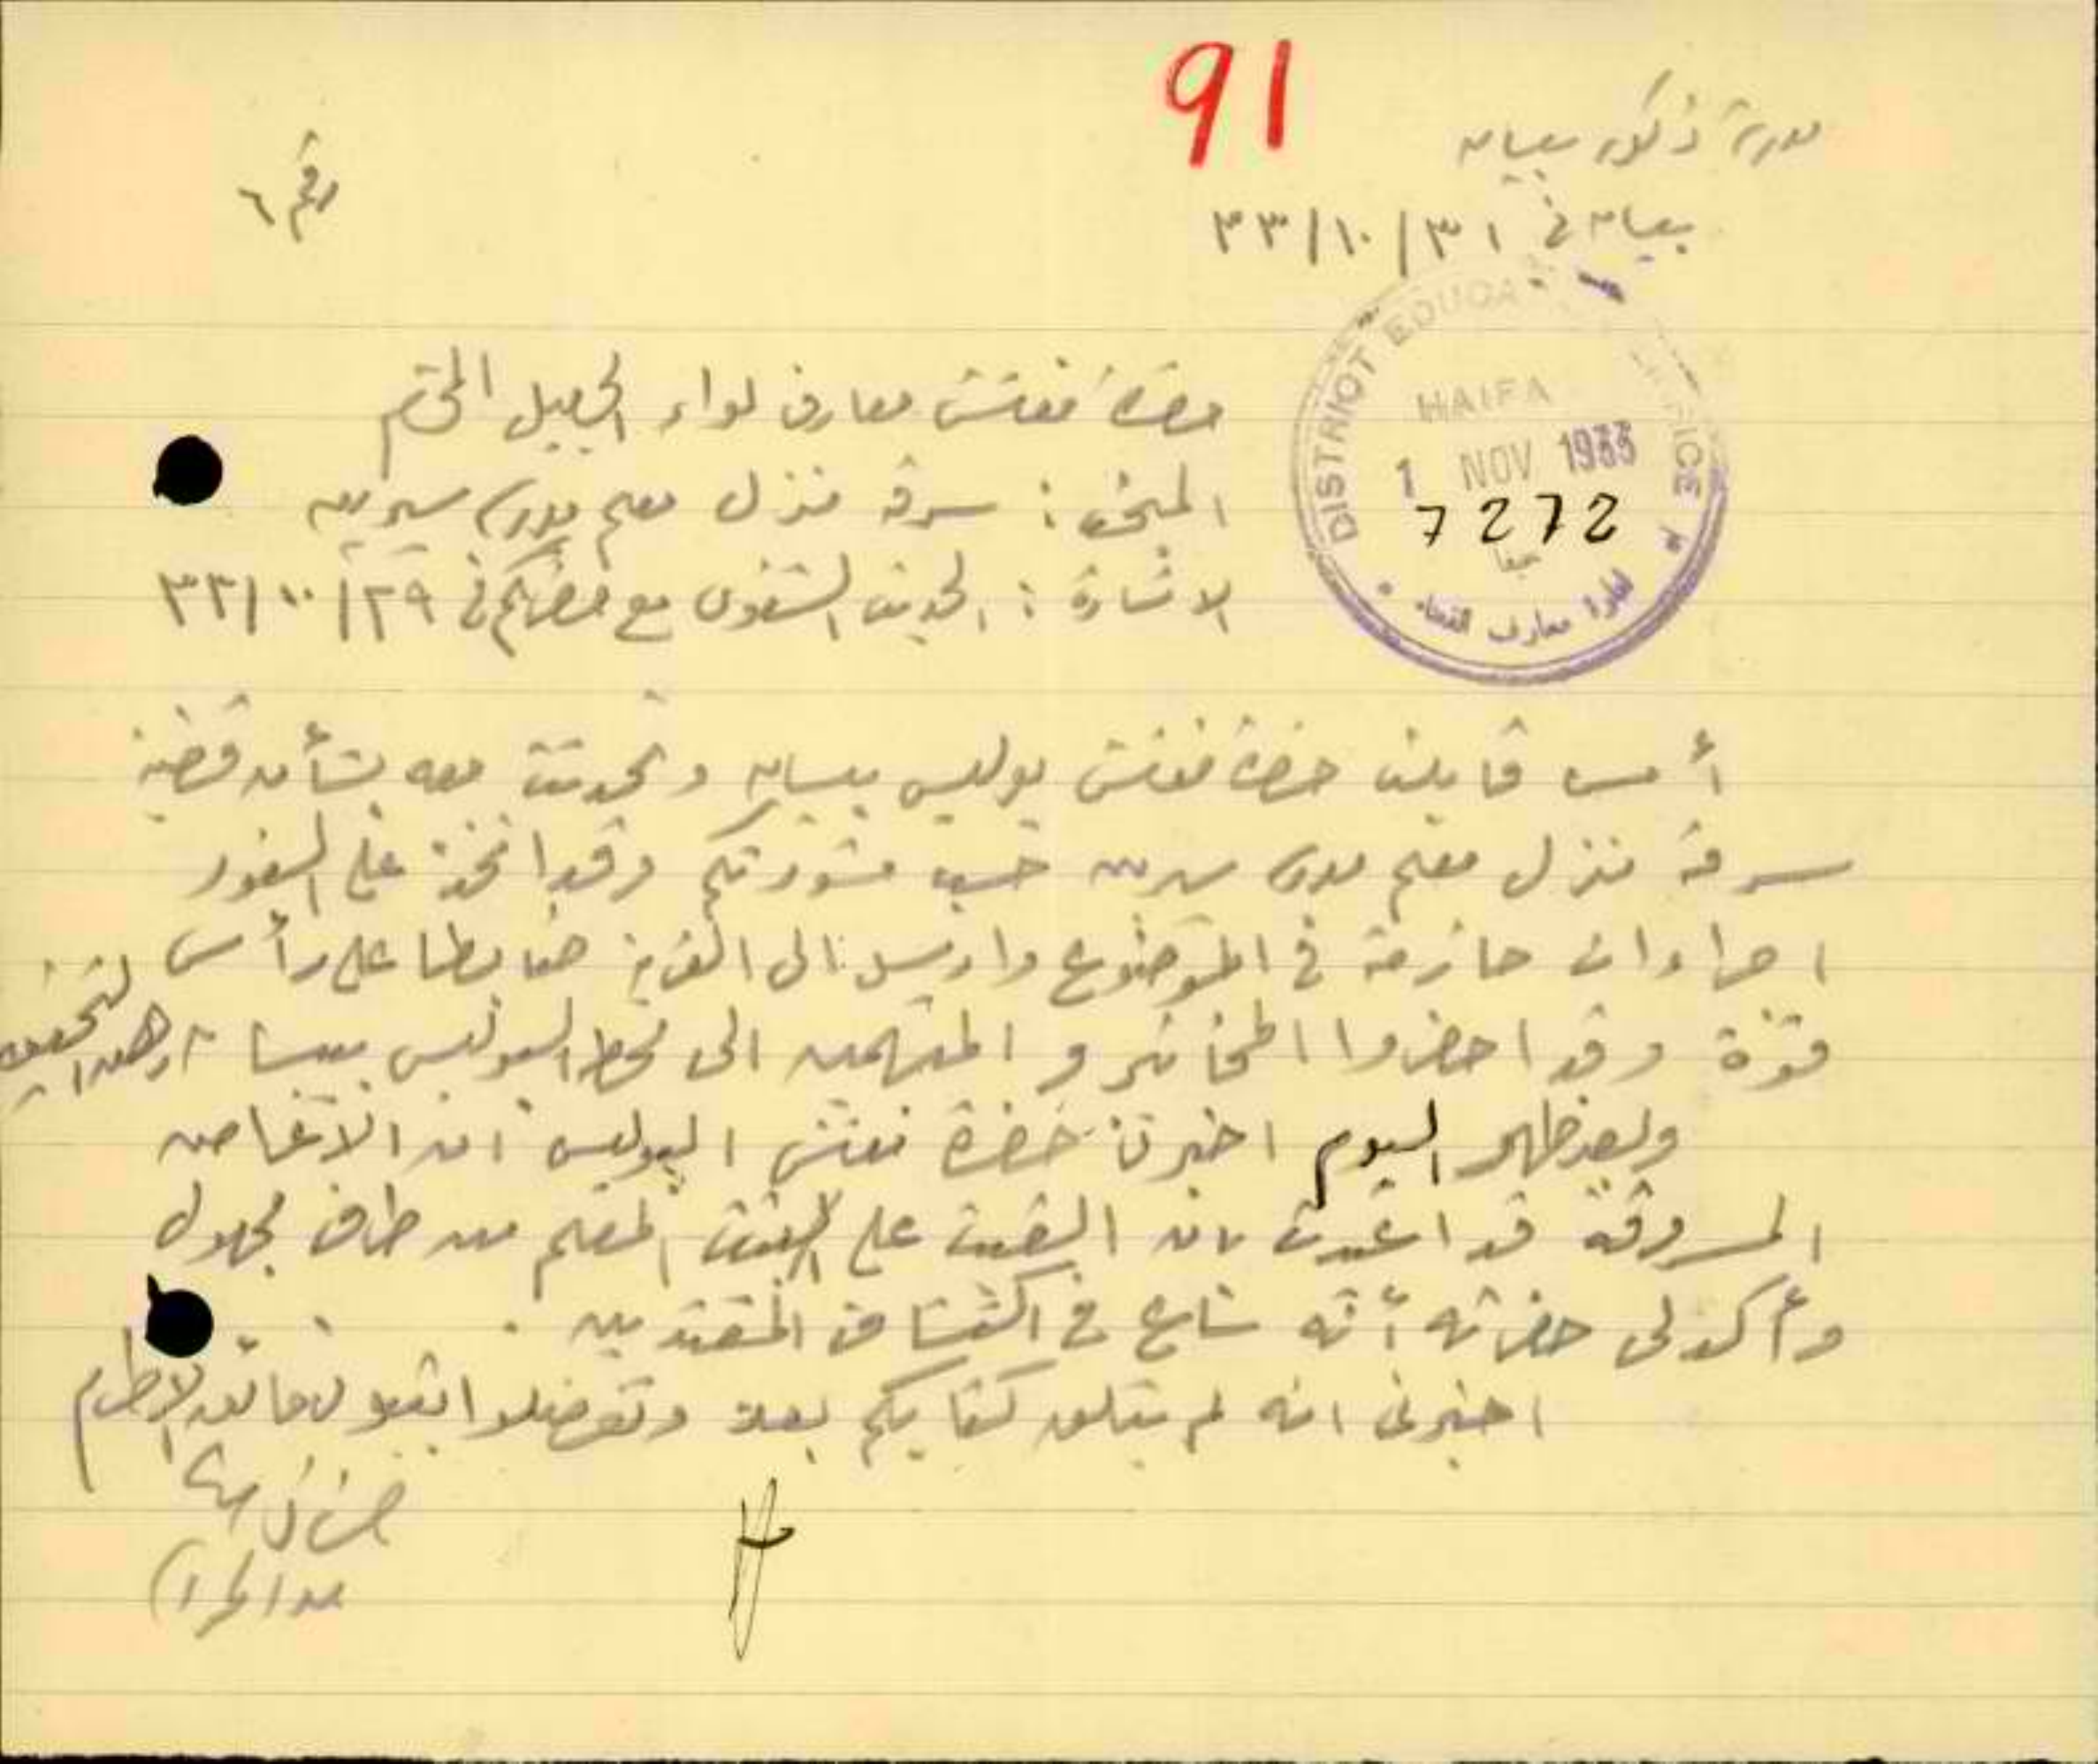 91
مدرسة ذكور بيسان
بيسان في ٣١/١٠/٣٣
رقم ٦
DISTRICT EDUCA OFFICE
HAIFA
1 NOV 1933
7272
حيفا
ادارة معارف القضاء
حضرة مفتش معارف لواء الجليل المحترم
المبحث : سرقة منزل معلم مدرسة سيرين
الاشارة : الحديث الشفوي مع حضرتكم في ٢٩/١٠/٣٣
أمس قابلت حضرة مفتش بوليس بيسان وتحدثت معه بشأن قضية
سرقة منزل معلم مدرسة سيرين حسب مشورتكم وقد اتخذ على الفور
اجراءات حازمة في الموضوع وارسل الى القرية ضابطا على رأس
قوة وقد احضروا المخاتير و المتهمين الى محطة البوليس ببيسان للتحقيق
وبعد ظهر اليوم اخبرنا حضرة مفتش البوليس ان الاغراض
المسروقة قد اعيدت بان القيت على بيت المعلم من طرف مجهول
وأكد لي حضرته أنه شارع في اكتشاف المعتدين .
اخبرني انه لم يتلق كتابكم بعد وتفضلوا بقبول فائق الاحترام